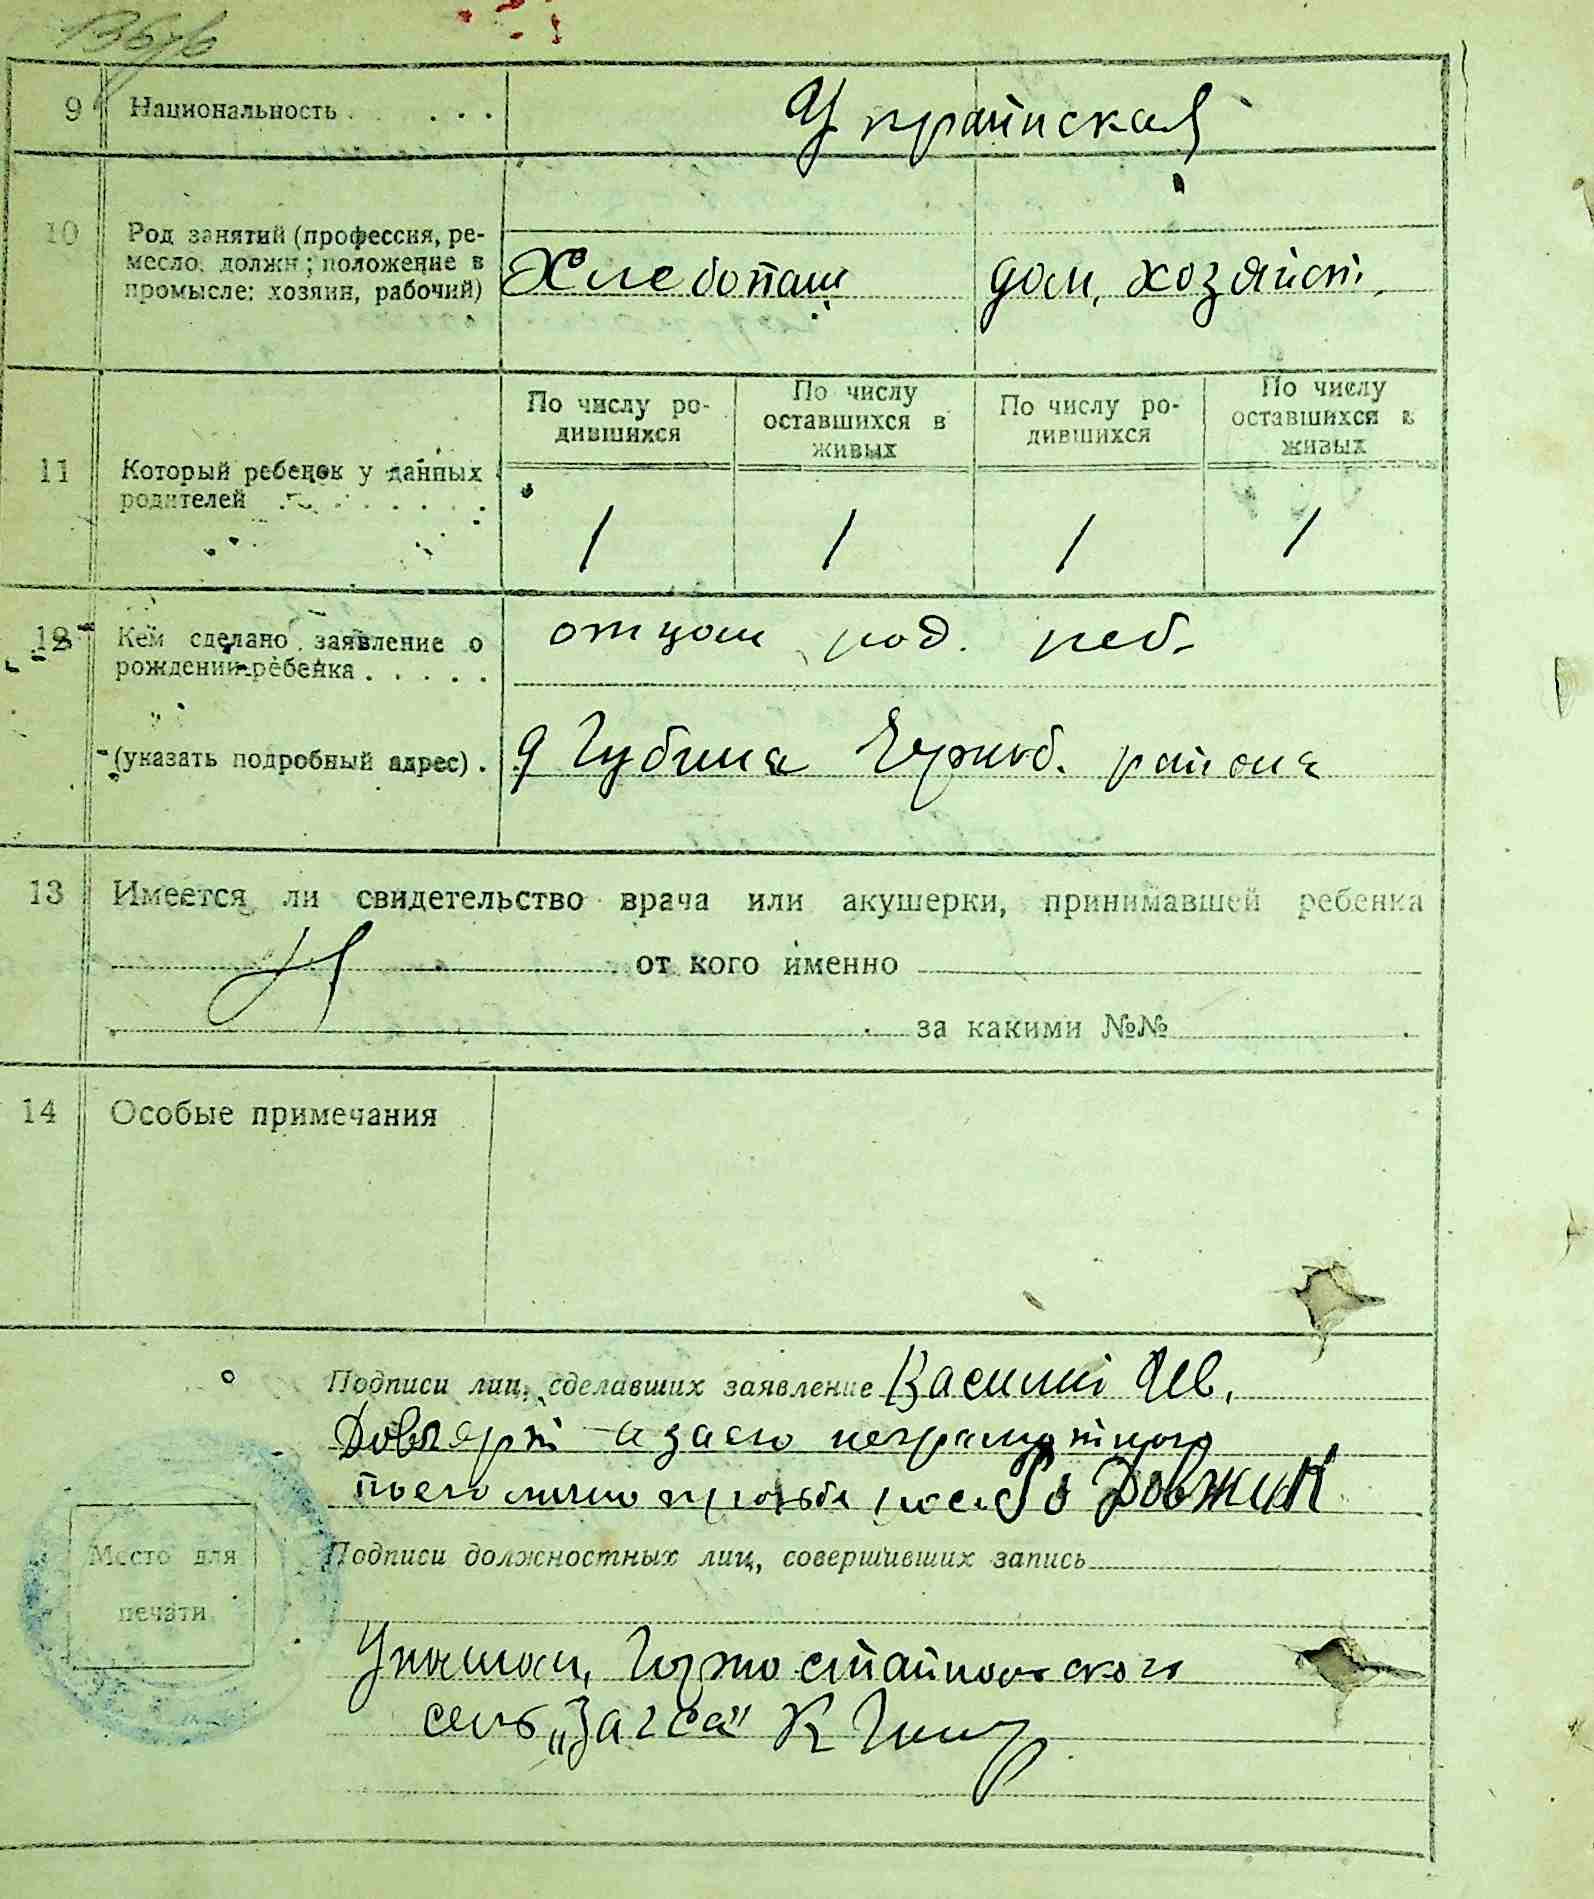 136/6
9 Национальность . . . . . Украинская
10 Род занятий (профессия, ре-
месло, должн; положение в
промысле: хозяин, рабочий)
Хлебопаш дом. хозяйст.
По числу ро-
дившихся
По числу
оставшихся в
живых
По числу ро-
дившихся
По числу
оставшихся в
живых
11 Который ребенок у данных
родителей . . . . . . . .
1 1 1 1
12 Кем сделано заявление о
рождении ребенка . . . . .
отцом род. реб.
(указать подробный адрес) . д Губина Черноб. района
13 Имеется ли свидетельство врача или акушерки, принимавшей ребенка
от кого именно
за какими №№
14 Особые примечания
Подписи лиц, сделавших заявление Василий
а за его неграмотного
по его личной просьбе Довжик
Место для
печати
Подписи должностных лиц, совершивших запись
Горностайпольского
сель „Загса" К